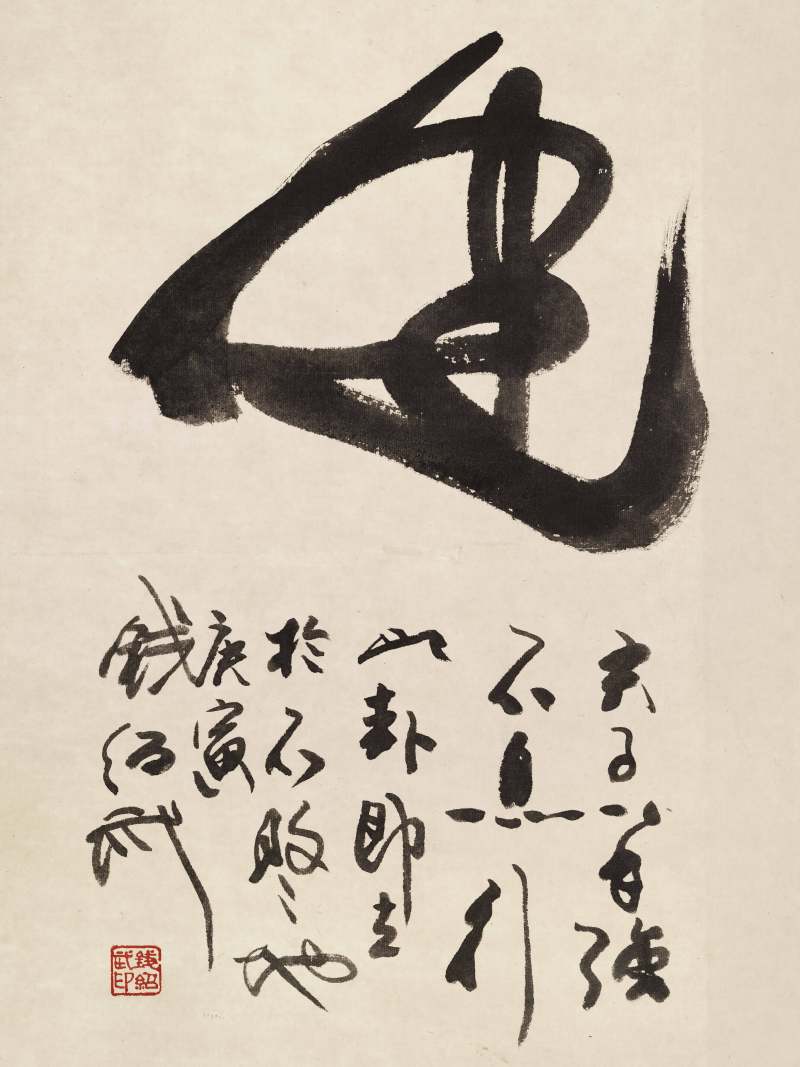 健
君子以自強
不息行
此卦即立
於不敗之地
庚寅
錢紹武
錢紹武印